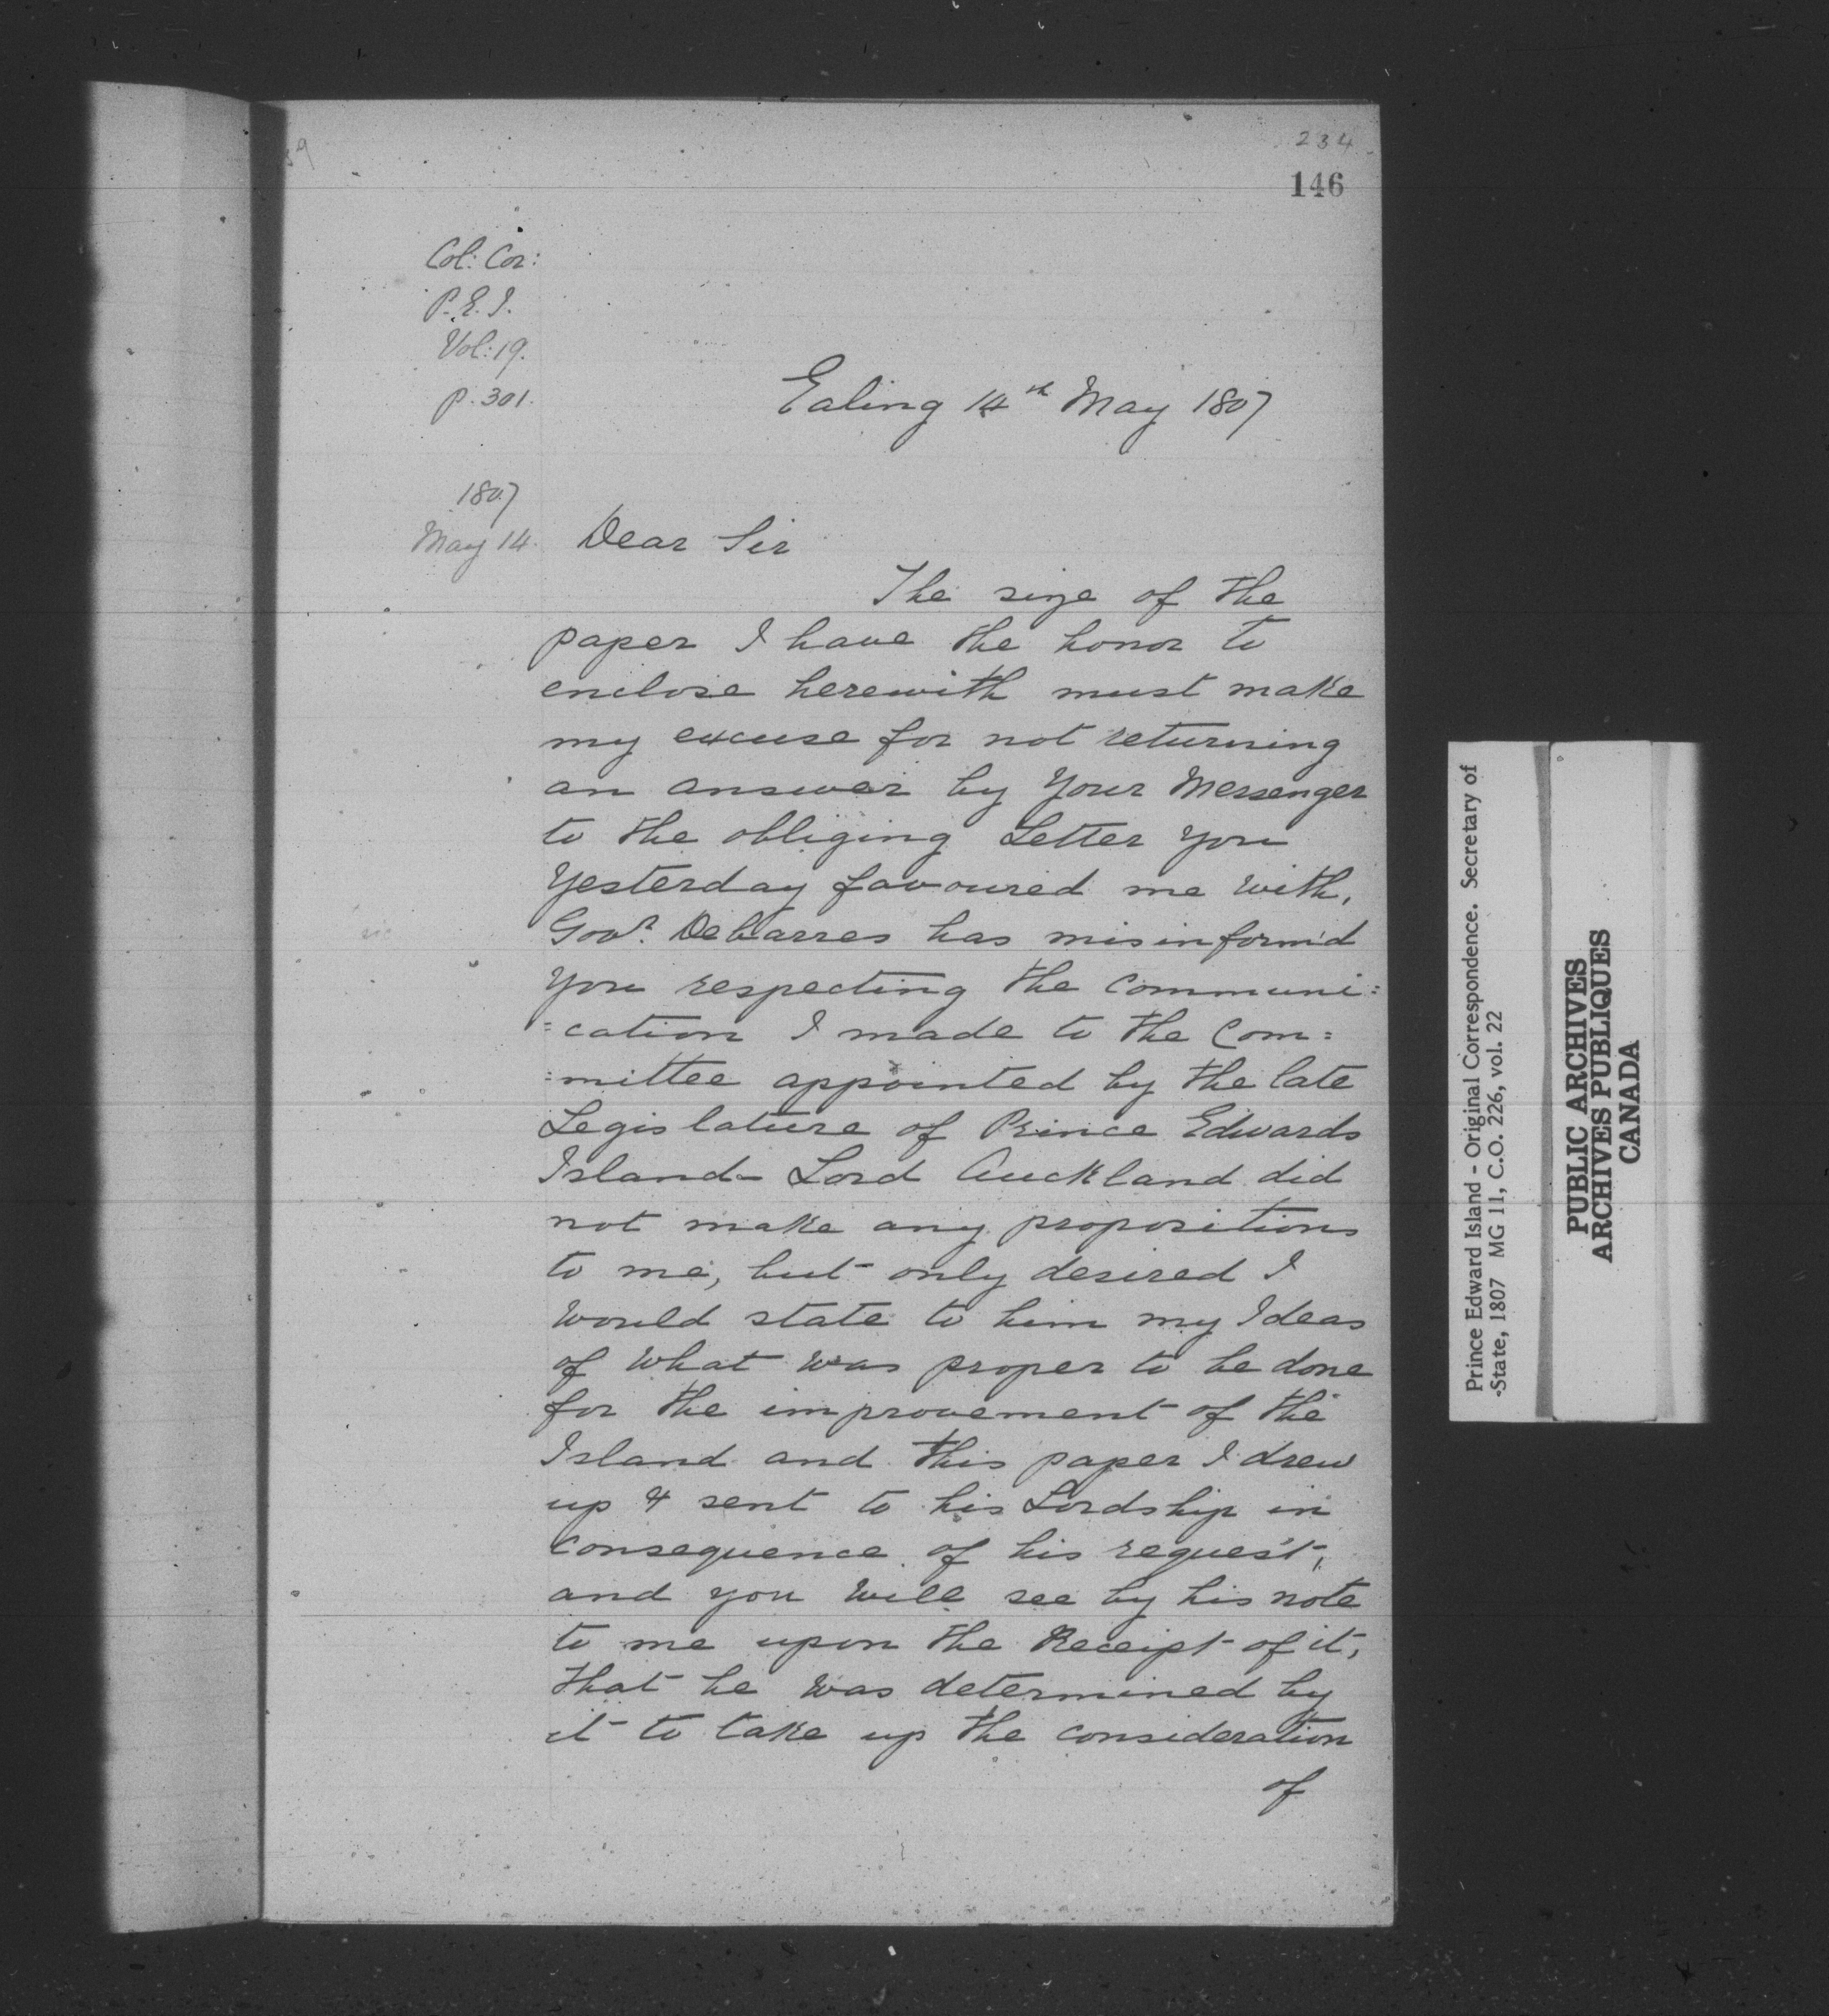 234
146
Col: Cor:
P.E.I.
Vol: 19.
p. 301.
Ealing 14th May 1807
1807
May 14.
Dear Sir
The size of the
paper I have the honor to
enclose herewith must make
my excuse for not returning
an answer by Your Messenger
to the obliging Letter you
Yesterday favoured me with,
Govr. Debarres has misinform'd
you respecting the Communi=
=cation I made to the Com=
=mittee appointed by the late
Legislature of Prince Edwards
Island - Lord Auckland did
not make any propositions
to me, but only desired I
would state to him my Ideas
of what was proper to be done
for the improvement of the
Island and this paper I drew
up & sent to his Lordship in
consequence of his request,
and you will see by his note
to me upon the Receipt of it,
that he was determined by
it to take up the consideration
of
Prince Edward Island - Original Correspondence. Secretary of
-State, 1807 MG 11, C.O. 226, vol. 22
PUBLIC ARCHIVES
ARCHIVES PUBLIQUES
CANADA